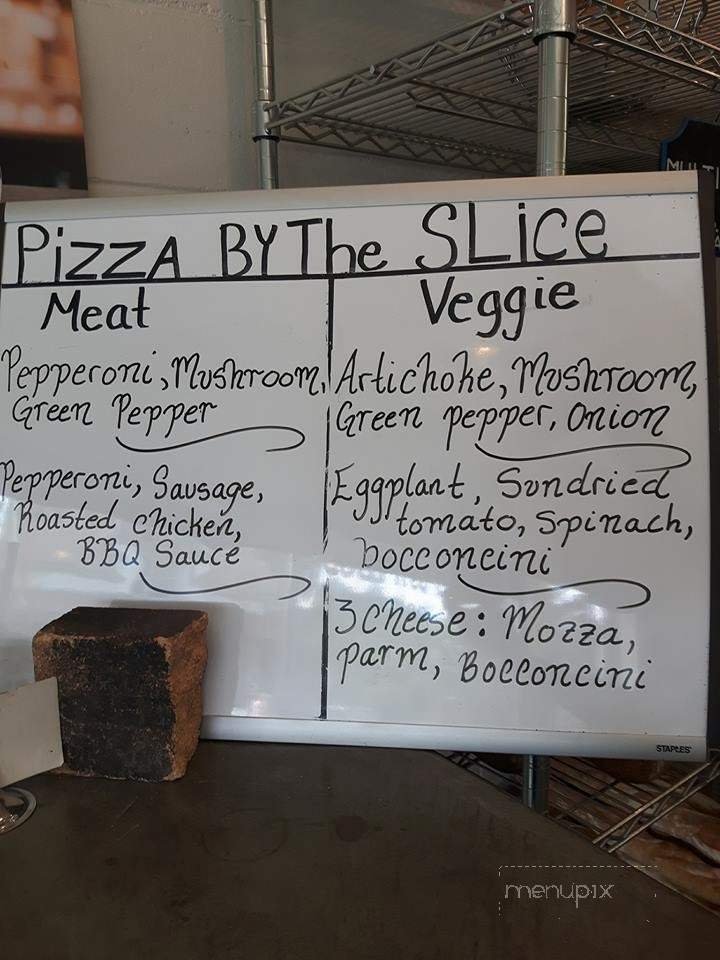 MULTI
PizzA BY The SLice
Meat
Pepperoni, Mushroom,
Green Pepper
Pepperoni, Sausage,
Roasted chicken,
BBQ Sauce
Veggie
Artichoke, Mushroom,
Green pepper, Onion
Eggplant, Sundried
tomato, Spinach,
bocconcini
3 Cheese: Mozza,
parm, Bocconcini
STAPLES
menupix